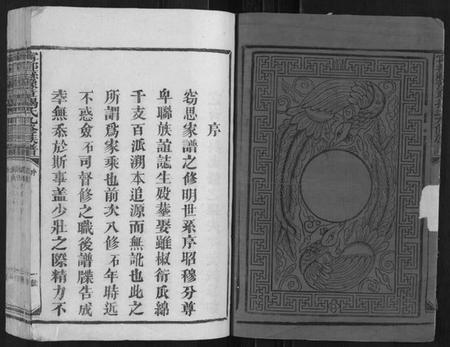 序
窃思家譜之修明世系序昭穆分尊
卑聯族誼誌生歿塟娶雖椒衍瓜綿
千支百派溯本追源而無訛也此之
所謂爲家乘也前次八修石年時近
不惑僉石司督修之職後譜牒告成
幸無忝於斯事盖少壯之際精力不